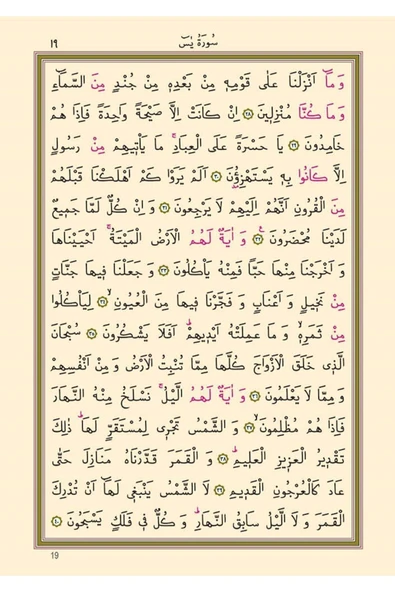 ١٩ سُورَةُ يٰسٓ
وَمَٓا اَنْزَلْنَا عَلٰى قَوْمِه۪ مِنْ بَعْدِه۪ مِنْ جُنْدٍ مِنَ السَّمَٓاءِ
وَمَا كُنَّا مُنْزِل۪ينَ ﴿٢٨﴾ اِنْ كَانَتْ اِلَّا صَيْحَةً وَاحِدَةً فَاِذَا هُمْ
خَامِدُونَ ﴿٢٩﴾ يَا حَسْرَةً عَلَى الْعِبَادِۚ مَا يَأْت۪يهِمْ مِنْ رَسُولٍ
اِلَّا كَانُوا بِه۪ يَسْتَهْزِؤُ۫نَ ﴿٣٠﴾ اَلَمْ يَرَوْا كَمْ اَهْلَكْنَا قَبْلَهُمْ
مِنَ الْقُرُونِ اَنَّهُمْ اِلَيْهِمْ لَا يَرْجِعُونَ ﴿٣١﴾ وَاِنْ كُلٌّ لَمَّا جَم۪يعٌ
لَدَيْنَا مُحْضَرُونَ ﴿٣٢﴾ وَاٰيَةٌ لَهُمُ الْاَرْضُ الْمَيْتَةُۚ اَحْيَيْنَاهَا
وَاَخْرَجْنَا مِنْهَا حَبًّا فَمِنْهُ يَأْكُلُونَ ﴿٣٣﴾ وَجَعَلْنَا ف۪يهَا جَنَّاتٍ
مِنْ نَخ۪يلٍ وَاَعْنَابٍ وَفَجَّرْنَا ف۪يهَا مِنَ الْعُيُونِۙ ﴿٣٤﴾ لِيَأْكُلُوا
مِنْ ثَمَرِه۪ۙ وَمَا عَمِلَتْهُ اَيْد۪يهِمْۜ اَفَلَا يَشْكُرُونَ ﴿٣٥﴾ سُبْحَانَ
الَّذ۪ي خَلَقَ الْاَزْوَاجَ كُلَّهَا مِمَّا تُنْبِتُ الْاَرْضُ وَمِنْ اَنْفُسِهِمْ
وَمِمَّا لَا يَعْلَمُونَ ﴿٣٦﴾ وَاٰيَةٌ لَهُمُ الَّيْلُۚ نَسْلَخُ مِنْهُ النَّهَارَ
فَاِذَا هُمْ مُظْلِمُونَۙ ﴿٣٧﴾ وَالشَّمْسُ تَجْر۪ي لِمُسْتَقَرٍّ لَهَاۜ ذٰلِكَ
تَقْد۪يرُ الْعَز۪يزِ الْعَل۪يمِۜ ﴿٣٨﴾ وَالْقَمَرَ قَدَّرْنَاهُ مَنَازِلَ حَتّٰى
عَادَ كَالْعُرْجُونِ الْقَد۪يمِ ﴿٣٩﴾ لَا الشَّمْسُ يَنْبَغ۪ي لَهَٓا اَنْ تُدْرِكَ
الْقَمَرَ وَلَا الَّيْلُ سَابِقُ النَّهَارِۜ وَكُلٌّ ف۪ي فَلَكٍ يَسْبَحُونَ ﴿٤٠﴾
19